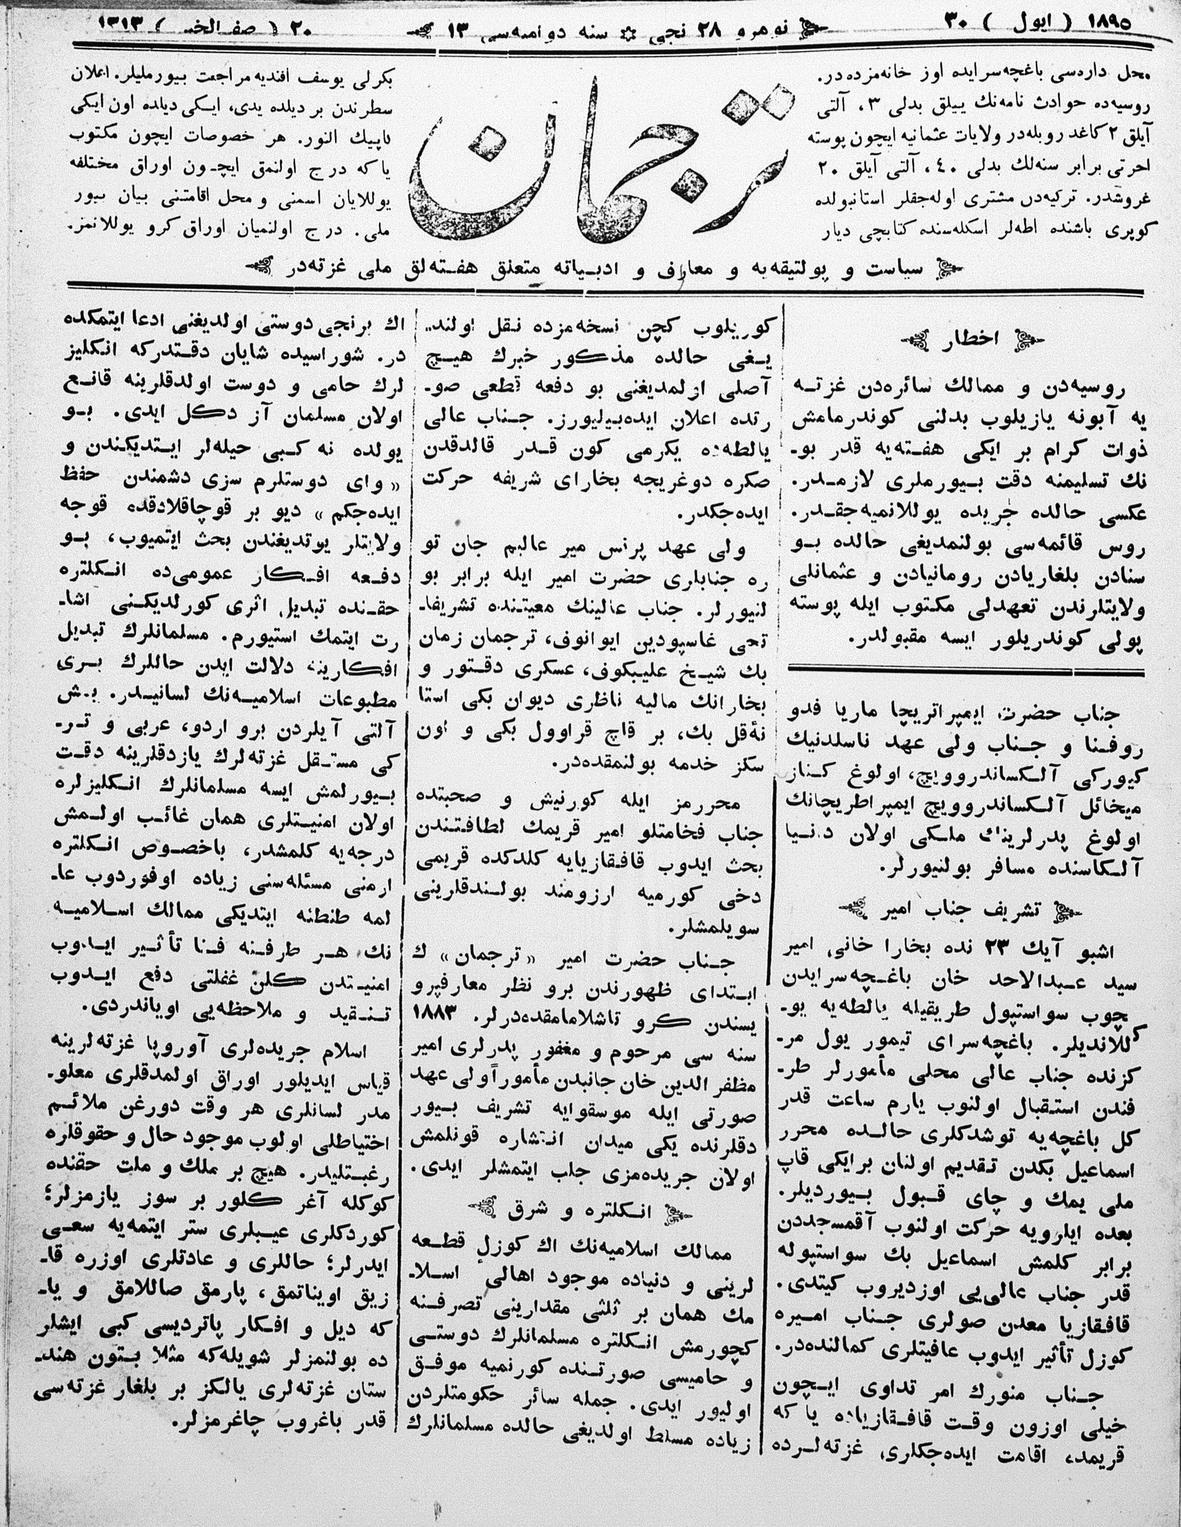 ١٨٩٥ ( ایول ) ٣٠
نومرو ٢٨ نجی ۞ سنه دوامیه‌سی ١٣
٢٠ ( صفر الخیر ) ١٣١٣
محل داره‌سی باغچه‌سرایده اوز خانه‌مزده در.
روسیه‌ده حوادث نامه‌نك ییللق بدلی ٣، آلتی
آیلق ٢ كاغد روبله‌در ولایات عثمانیه ایچون پوسته
اجرتی برابر سنه‌لك بدلی ٤٠، آلتی آیلق ٢٠
غروشدر. تركیه‌دن مشتری اوله‌جقلر استانبولده
كوپری باشنده اطه‌لر اسكله‌سنده كتابچی دیار
ترجمان
بكرلی یوسف افندیه مراجعت بیورملیلر. اعلان
سطرندن بر دیلده یدی، ایكی دیلده اون ایكی
قاپیك النور. هر خصوصات ایچون مكتوب
یا كه درج اولنمق ایچون اوراق مختلفه
یوللایان اسمنی و محل اقامتنی بیان بیور
ملی. درج اولنمیان اوراق كرو یوللانمز.
سیاست و پولتیقه‌یه و معارف و ادبیاته متعلق هفته‌لق ملی غزته‌در
اخطار
روسیه‌دن و ممالك سائره‌دن غزته
یه آبونه یازیلوب بدلنی كوندرمامش
ذوات كرام بر ایكی هفته‌یه قدر بو-
نك تسلیمنه دقت بیورملری لازمدر.
عكسی حالده جریده یوللانمیه‌جقدر.
روس قائمه‌سی بولنمدیغی حالده بو
سنادن بلغاریادن رومانیادن و عثمانلی
ولایتلرندن تعهدلی مكتوب ایله پوسته
پولی كوندریلور ایسه مقبولدر.
جناب حضرت ایمپراتریچا ماریا فدو
روفنا و جناب ولی عهد ناسلدنیك
كیوركی آلكساندروویچ، اولوغ كناز
میخائل آلكساندروویچ ایمپراطریچانك
اولوغ پدرلرینك ملكی اولان دانیا
آلكاسنده مسافر بولنیورلر.
تشریف جناب امیر
اشبو آیك ٢٣ نده بخارا خانی امیر
سید عبدالاحد خان باغچه‌سرایدن
چوب سواستپول طریقیله یالطه‌یه یو-
للاندیلر. باغچه‌سرای تیمور یول مر-
كزنده جناب عالی محلی مأمورلر طر-
فندن استقبال اولنوب یارم ساعت قدر
كل باغچه‌یه توشدكلری حالده محرر
اسماعیل بكدن تقدیم اولنان برایكی قاپ
ملی یمك و چای قبول بیوردیلر.
بعده ایلرویه حركت اولنوب آقمسجددن
برابر كلمش اسماعیل بك سواستپوله
قدر جناب عالی‌یی اوزدیروب كیتدی.
قافقازیا معدن صولری جناب امیره
كوزل تأثیر ایدوب عافیتلری كمالنده‌در.
جناب منورك امر تداوی ایچون
خیلی اوزون وقت قافقازیاده یا كه
قریمده اقامت ایده‌جكلری، غزته‌لرده
كوریلوب كچن نسخه‌مزده نقل اولند-
یغی حالده مذكور خبرك هیچ
آصلی اولمدیغنی بو دفعه قطعی صو-
رتده اعلان ایده‌بیلیورز. جناب عالی
یالطه‌ده یكرمی كون قدر قالدقدن
صكره دوغریجه بخارای شریفه حركت
ایده‌جكدر.
ولی عهد پرنس میر عالیم جان تو
ره جنابلری حضرت امیر ایله برابر بو
لنیورلر. جناب عالینك معیتنده تشریفا-
تچی غاسپودین ایوانوف، ترجمان زمان
بك شیخ علیبكوف، عسكری دقتور و
بخارانك مالیه ناظری دیوان بكی استا
نه‌قل بك، بر قاچ قراوول بكی و اون
سكز خدمه بولنمقده‌در.
محررمز ایله كورنیش و صحبتده
جناب فخامتلو امیر قریمك لطافتندن
بحث ایدوب قافقازیایه كلدكده قریمی
دخی كورمیه ارزومند بولندقلرینی
سویلمشلر.
جناب حضرت امیر «ترجمان» ك
ابتدای ظهورندن برو نظر معارفپرو
یسندن كرو تاشلامامقده‌درلر. ١٨٨٣
سنه سی مرحوم و مغفور پدرلری امیر
مظفر الدین خان جانبدن مأموراً ولی عهد
صورتی ایله موسقوایه تشریف بیور
دقلرنده یكی میدان انتشاره قونلمش
اولان جریده‌مزی جلب ایتمشلر ایدی.
انكلتره و شرق
ممالك اسلامیه‌نك اك كوزل قطعه
لرینی و دنیاده موجود اهالی اسلا-
مك همان بر ثلثی مقدارینی تصرفنه
كچورمش انكلتره مسلمانلرك دوستی
و حامیسی صورتنده كورنمیه موفق
اولیور ایدی. جمله سائر حكومتلردن
زیاده مسلط اولدیغی حالده مسلمانلرك
اك برنجی دوستی اولدیغنی ادعا ایتمكده
در. شوراسیده شایان دقتدركه انكلیز
لرك حامی و دوست اولدقلرینه قانع
اولان مسلمان آز دكل ایدی. بو
یولده نه كبی حیله‌لر ایتدیكندن و
«وای دوستلرم سزی دشمندن حفظ
ایده‌جكم» دیو بر قوچاقلادقده قوجه
ولایتلر یوتدیغندن بحث ایتمیوب، بو
دفعه افكار عمومی‌ده انكلتره
حقنده تبدیل اثری كورلدیكنی اشا-
رت ایتمك استیورم. مسلمانلرك تبدیل
افكارینه دلالت ایدن حاللرك بری
مطبوعات اسلامیه‌نك لسانیدر. بش
آلتی آیلردن برو اردو، عربی و تر-
كی مستقل غزته‌لرك یازدقلرینه دقت
بیورلمش ایسه مسلمانلرك انكلیزلره
اولان امنیتلری همان غائب اولمش
درجه‌یه كلمشدر، باخصوص انكلتره
ارمنی مسئله‌سنی زیاده اوفوردوب عا-
لمه طنطنه ایتدیكی ممالك اسلامیه
نك هر طرفنه فنا تأثیر ایدوب
امنیتدن كلن غفلتی دفع ایدوب
تنقید و ملاحظه‌یی اویاندردی.
اسلام جریده‌لری آوروپا غزته‌لرینه
قیاس ایدیلور اوراق اولمدقلری معلو-
مدر لسانلری هر وقت دورغن ملائم
اختیاطلی اولوب موجود حال و حقوقلره
رغبتلیدر. هیچ بر ملك و ملت حقنده
كوكله آغر كلور بر سوز یازمزلر؛
كوردكلری عیبلری ستر ایتمه‌یه سعی
ایدرلر؛ حاللری و عادتلری اوزره قا-
زیق اویناتمق، پارمق صاللامق و یا-
كه دیل و افكار پاتردیسی كبی ایشلر
ده بولنمزلر شویله‌كه مثلا بتون هند-
ستان غزته‌لری یالكز بر بلغار غزته‌سی
قدر باغروب چاغرمزلر.